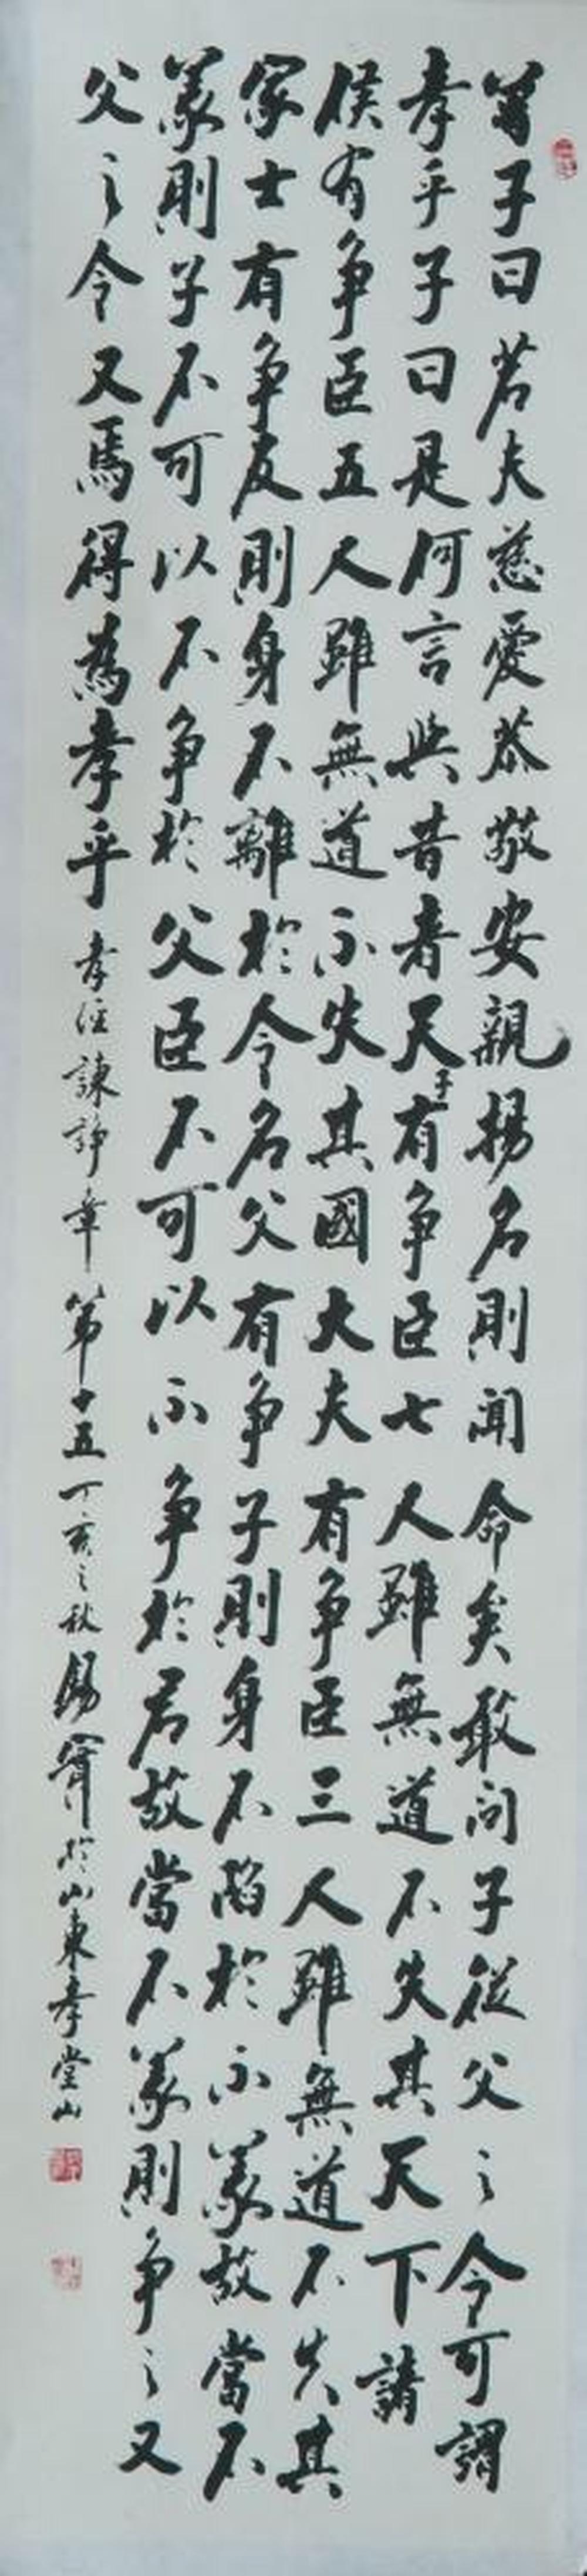 曾子曰若夫慈愛恭敬安親揚名則聞命矣敢问子從父之令可謂
孝乎子曰是何言與昔者天子有争臣七人雖無道不失其天下諸
侯有争臣五人雖無道不失其國大夫有争臣三人雖無道不失其
家士有争友則身不離於令名父有争子則身不陷於不義故當不
義則子不可以不争於父臣不可以不争於君故當不義則争之又
父之令又焉得為孝乎孝經諫諍章第十五丁亥之秋錫於山東孝堂山